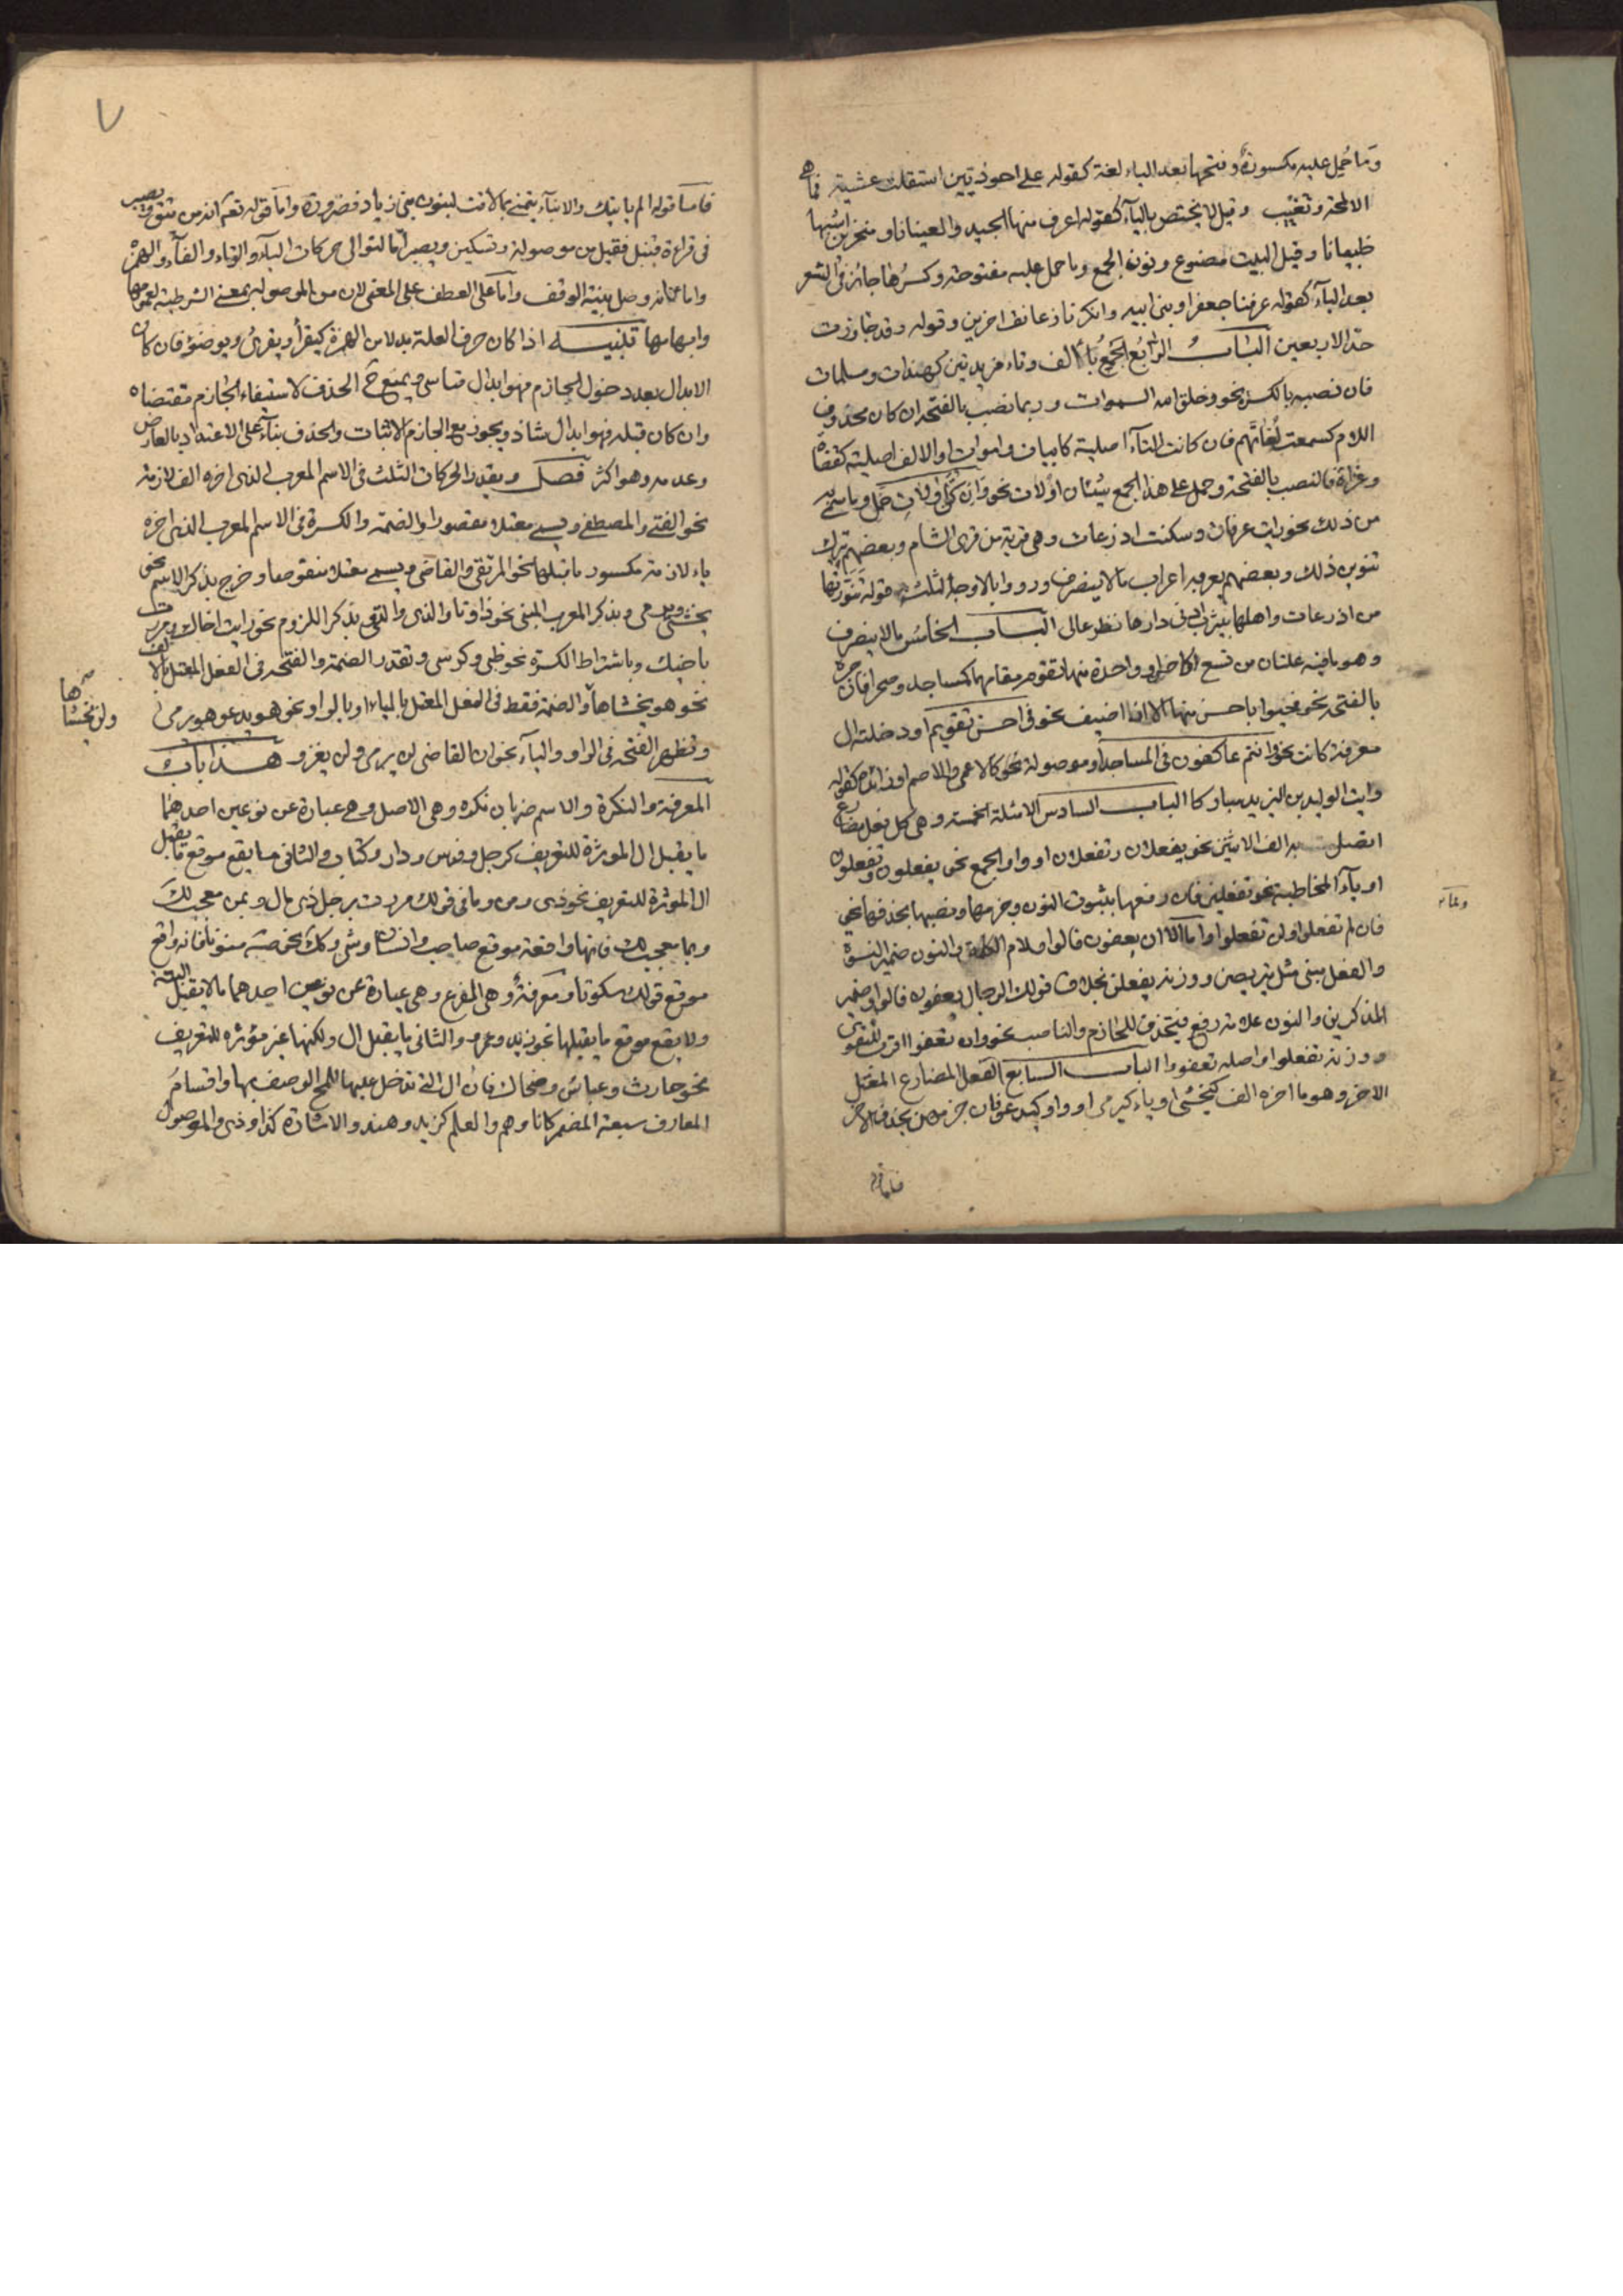 وما حُمِل عليه مكسورة وفتحها بعد الياء لغة كقوله على احوذيين استقلت عشية فما هي
الا لمحة وتغيب وقيل لا يختص بالياء كقوله اعرف منها الجيد والعينانا ومنخرين اشبها
ظبيانا وقيل البيت مصنوع ونون الجمع وما حمل عليه مفتوحة وكسرُها جائز في الشعر
بعد الياء كقوله عرفنا جعفرا وبني ابيه وانكرنا زعانف اخرين وقوله وقد جاوزت
حد الاربعين البابُ الرابع الجمعُ بالف وتاء مزيدتين كهندات ومسلمات
فان نصبه بالكسرة نحو وخلق الله السموات وربما نصب بالفتحة ان كان محذوف
اللام كسمعت لُغاتَهم فان كانت التاء اصلية كابيات واموات او الالف اصلية كقضاة
وغزاة فالنصب بالفتحة وحمل على هذا الجمع شيئان اولات نحو وان كن اولاتِ حمل وما سمي به
من ذلك نحو رايت عرفات وسكنت اذرعات وهي قرية من قرى الشام وبعضهم يترك
تنوين ذلك وبعضهم يعربه اعراب ما لا ينصرف ورووا بالاوجه الثلثة قوله تنورتها
من اذرعات واهلها بيثرب ادنى دارها نظر عالى الباب الخامس ما لا ينصرف
وهو ما فيه علتان من تسع او واحدة منها تقوم مقامهما كمساجد وصحرا فان جره
بالفتحة نحو فحيوا باحسن منها الا ان اضيف نحو في احسن تقويم او دخلته ال
معرفة كانت نحو وانتم عاكفون في المساجد او موصولة نحو كالاعمى والاصم او زائدة كقوله
رايت الوليد بن اليزيد مباركا الباب السادس الامثلة الخمسة وهي كل فعل مضارع
اتصل به الف الاثنين نحو يفعلان وتفعلان او واو الجمع نحو يفعلون وتفعلون
او ياء المخاطبة نحو تفعلين فان رفعها بثبوت النون وجزمها ونصبها بحذفها نحو
فان لم تفعلوا ولن تفعلوا واما الا ان يعفون فالواو لام الكلمة والنون ضمير النسوة
والفعل مبني مثل يتربصن ووزنه يفعلن بخلاف قولك الرجال يعفون فالواو ضمير
المذكرين والنون علامة رفع فيحذف للجازم والناصب نحو وان تعفوا اقرب للتقوى
ووزنه تفعلوا واصله تعفووا الباب السابع الفعل المضارع المعتل
الاخر وهو ما اخره الف كيخشى او ياء كيرمي او واو كيدعو فان جزمهن بحذف الاخر
وعاء
فاما قوله
٧
فاما قوله الم ياتيك والانباء تنمي بما لاقت لبون بني زياد فضرورة واما قوله تعم انه من يتقي ويصبر
في قراءة قنبل فقيل من موصولة وتسكين ويصبر اما لتوالي حركات الباء والراء والفاء والهمزة
واما لانه وصل بنية الوقف واما على العطف على المعنى لان من الموصولة بمعنى الشرطية لعمومها
وابهامها تنبيه اذا كان حرف العلة بدلا من الهمزة كيقرأ ويقرئ ويوضؤ فان كان
الابدال بعد دخول الجازم فهو ابدال قياسي ويمتنع ح الحذف لاستيفاء الجازم مقتضاه
وان كان قبله فهو ابدال شاذ ويجوز مع الجازم الاثبات والحذف بناء على الاعتداد بالعارض
وعدمه وهو اكثر فصل ويقدر الحركات الثلث في الاسم المعرب الذي اخره الف لازمة
نحو الفتى والمصطفى ويسمى معتلا مقصورا والضمة والكسرة في الاسم المعرب الذي اخره
ياء لازمة مكسور ما قبلها نحو المرتقي والقاضي ويسمى معتلا منقوصا وخرج بذكر الاسم نحو
يخشى ويرمي وبذكر المعرب المبني نحو ذا وتا والذي والتي وبذكر اللزوم نحو رايت اخاك ومررت
باخيك وباشتراط الكسرة نحو ظبي وكرسي وتقدر الضمة والفتحة في الفعل المعتل بالالف
نحو هو يخشاها والضمة فقط في الفعل المعتل بالياء او بالواو نحو هو يدعو هو يرمي
وتظهر الفتحة في الواو والياء نحو ان القاضي لن يرمي ولن يغزو هذا باب
المعرفة والنكرة والاسم ضربان نكره وهي الاصل وهي عبارة عن نوعين احدهما
ما يقبل ال الموثرة للتعريف كرجل وفرس ودار وكتاب والثاني ما يقع موقع ما يقبل
ال الموثرة للتعريف نحو ذي ومن وما في قولك مررت برجل ذي مال وبمن معجب لك
وبما معجب لك فانها واقعة موقع صاحب وانسان وشي وكك نحو صه منونا فانه واقع
موقع قولك سكوتا ومعرفةٌ وهي الفرع وهي عبارة عن نوعين احدهما ما لا يقبل ال البتة
ولا يقع موقع ما يقبلها نحو زيد وعمرو والثاني ما يقبل ال ولكنها غير موثره للتعريف
نحو حارث وعباس وضحاك فان ال التي تدخل عليها للمح الوصف بها واقسام
المعارف سبعة المضمر كانا وهم والعلم كزيد وهند والاشارة كذا وذي والموصول
ولن يخشاها